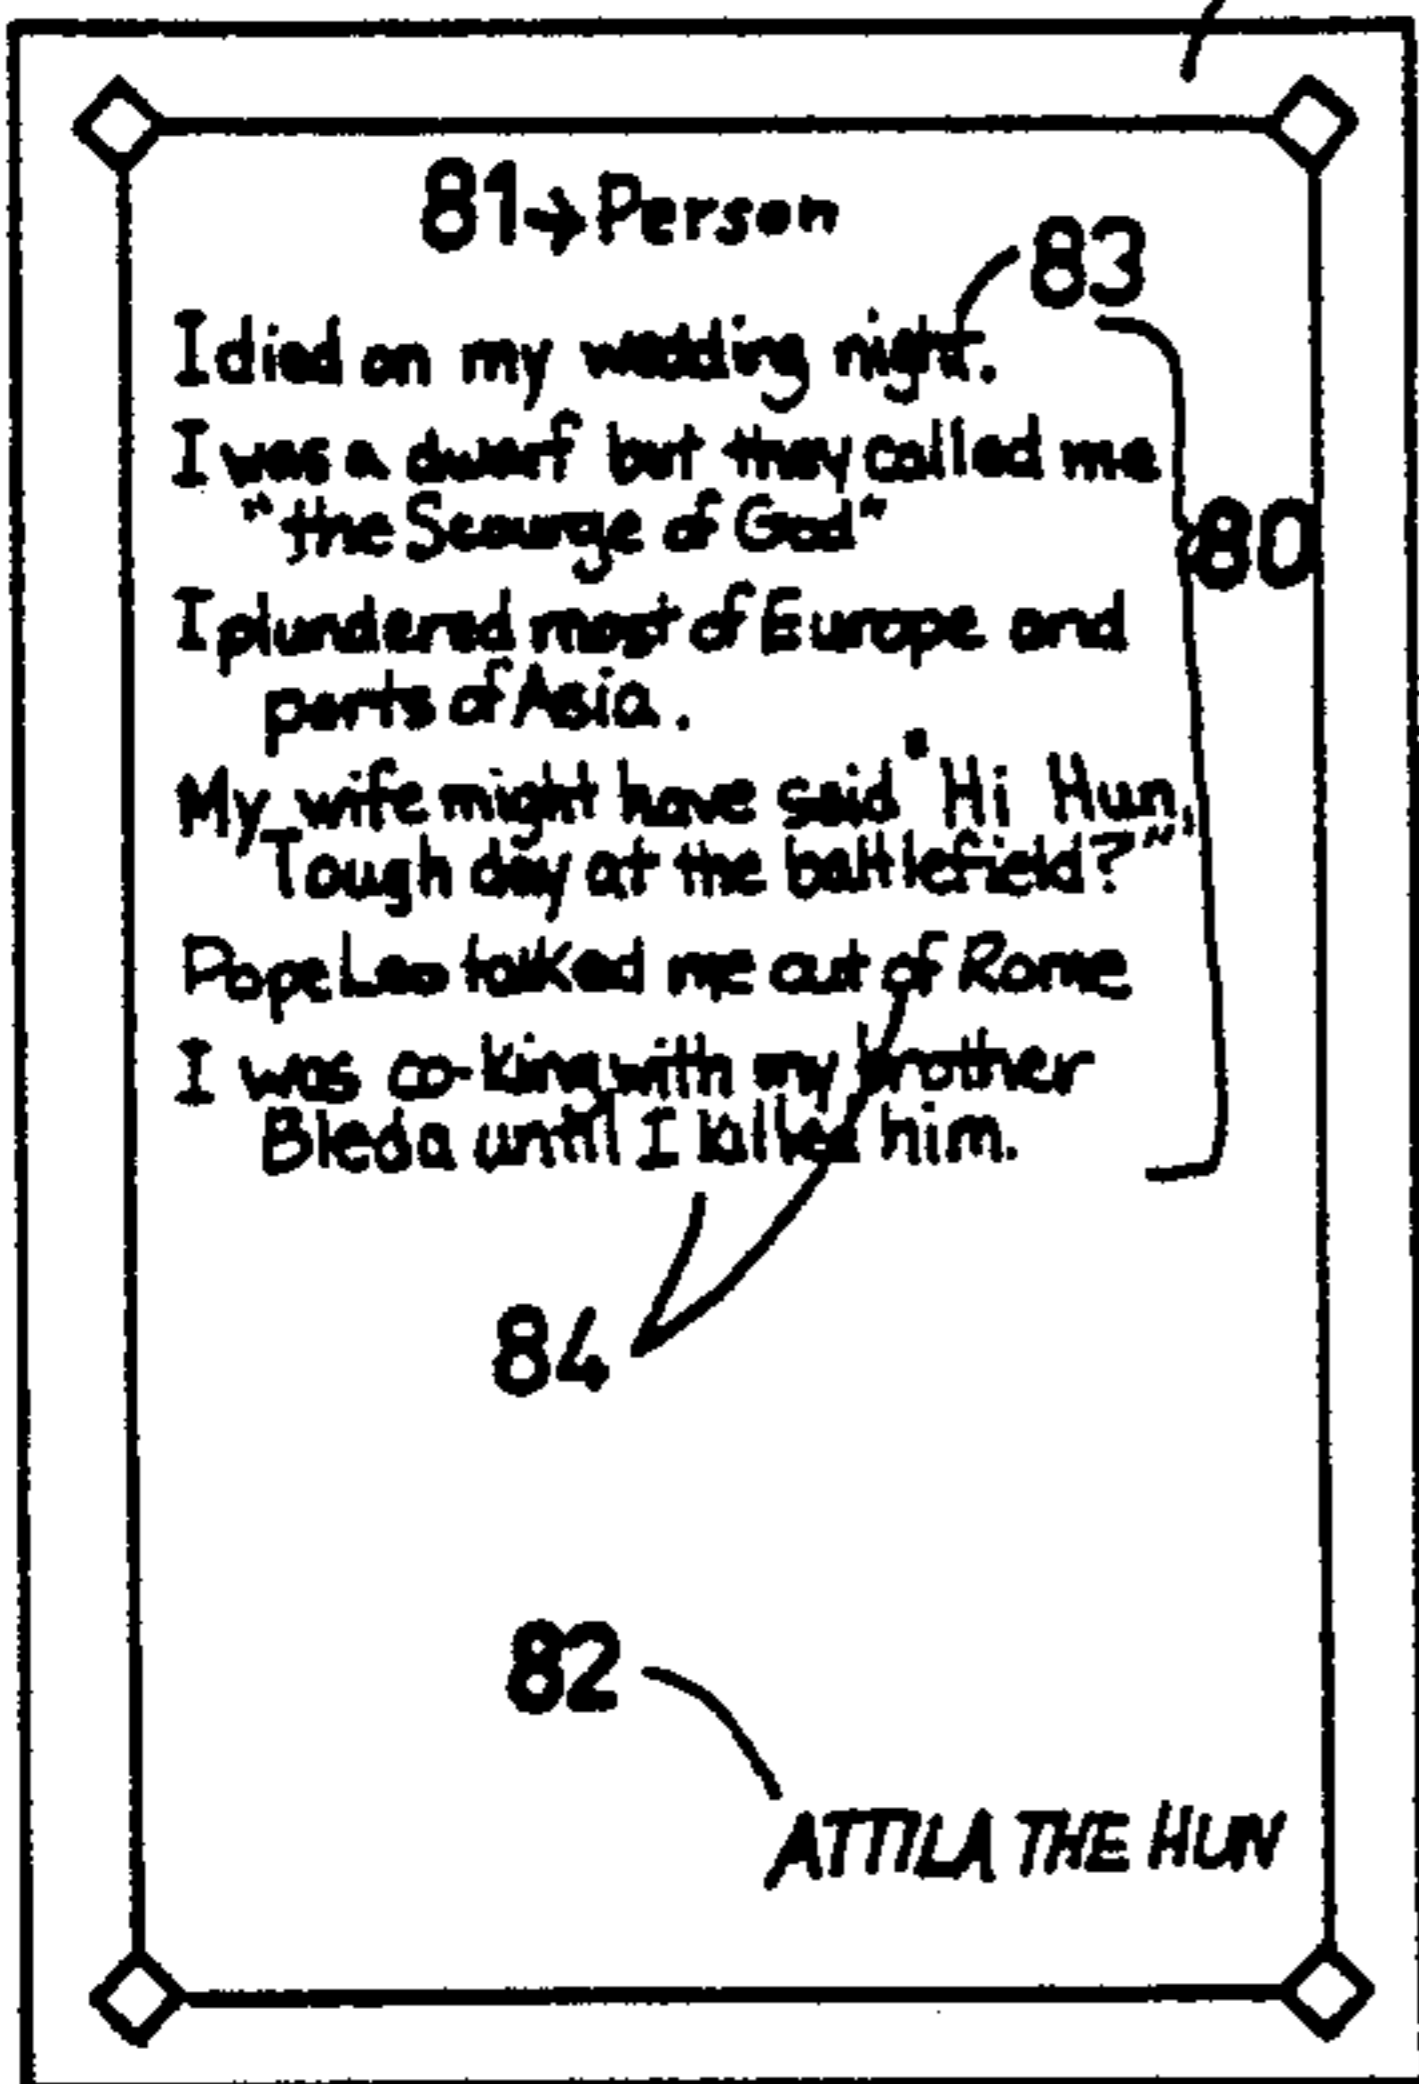 81→Person
83
I died on my wedding night.
I was a dwarf but they called me
"the Scourge of God"
80
I plundered most of Europe and
parts of Asia.
My wife might have said "Hi Hun,
Tough day at the battlefield?"
Pope Leo talked me out of Rome
I was co-king with my brother
Bleda until I killed him.
84
82
ATTILA THE HUN